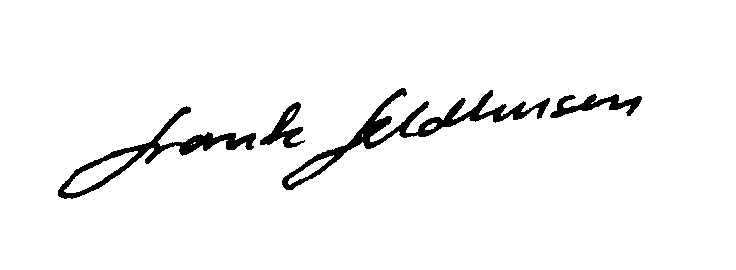 Frank Feldhusen